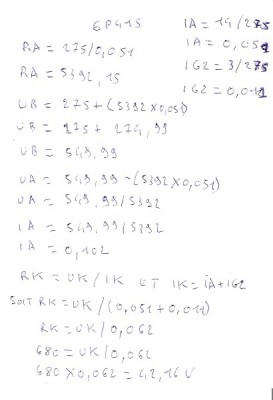 6P41S
RA = 275/0,051
RA = 5392,15
UB = 275+(5392x0,051)
UB = 275 + 274,99
UB = 549,99
UA = 549,99-(5392x0,051)
UA = 549,99/5392
IA = 549,99/5392
IA = 0,102
IA = 14/275
IA = 0,051
IG2 = 3/275
IG2 = 0,011
RK = UK/IK ET IK=IA+IG2
SOIT RK=UK/(0,051+0,011)
RK = UK/0,062
680 = UK/0,062
680 X0,062 = 42,16 V